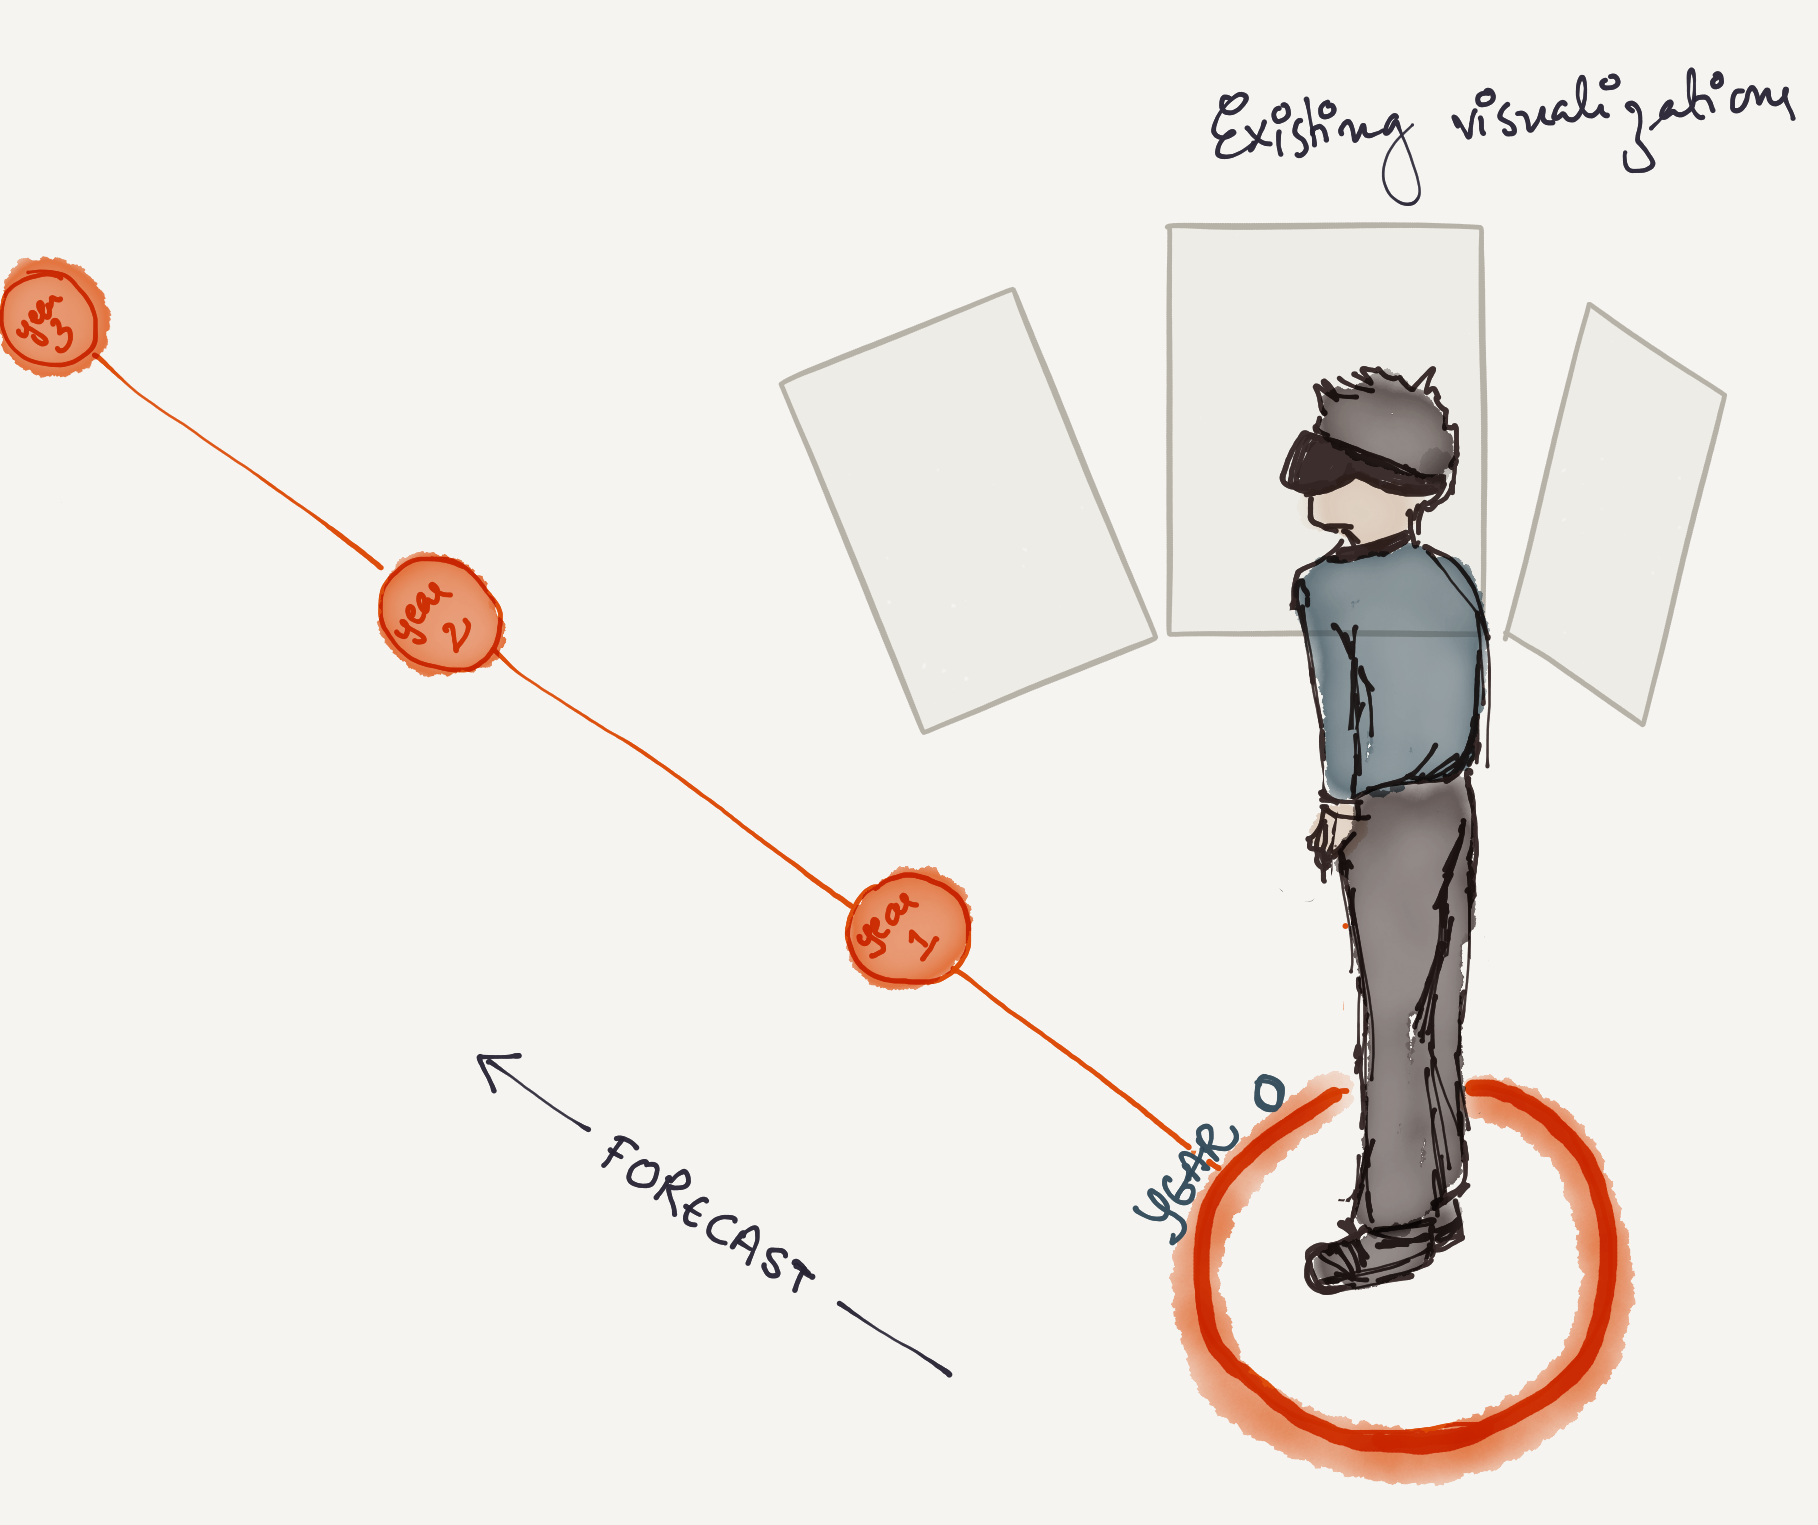 Existing visualizations
year
3
year
2
year
1
YEAR 0
FORECAST